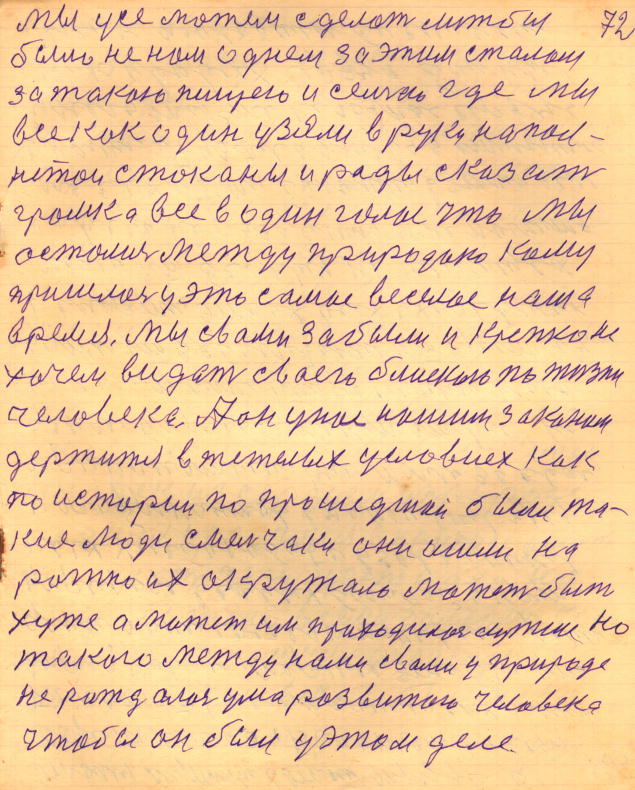 мы усе можем сделат штобы 72
было не ном однем за этим сталом
за такою пищею и сейчас где мы
все как один узяли в руки напол-
нетои стоканы и рады сказат
громка все в один голос что мы
осталис между природою кому
пришлос у это самое веселое наша
время. Мы свами забыли и крепко не
хочем видат своего блиского по жизни
человека. А он унас нашим законам
держится в тежелых условиех как
по истории по прошедшей были та-
кие люди смелчаки они шли на
ражно их окружало может быт
хуже а может им приходилос лутше но
такого между нами свами у природе
не рождалос ума розвитого человека
чтобы он был у этом деле.